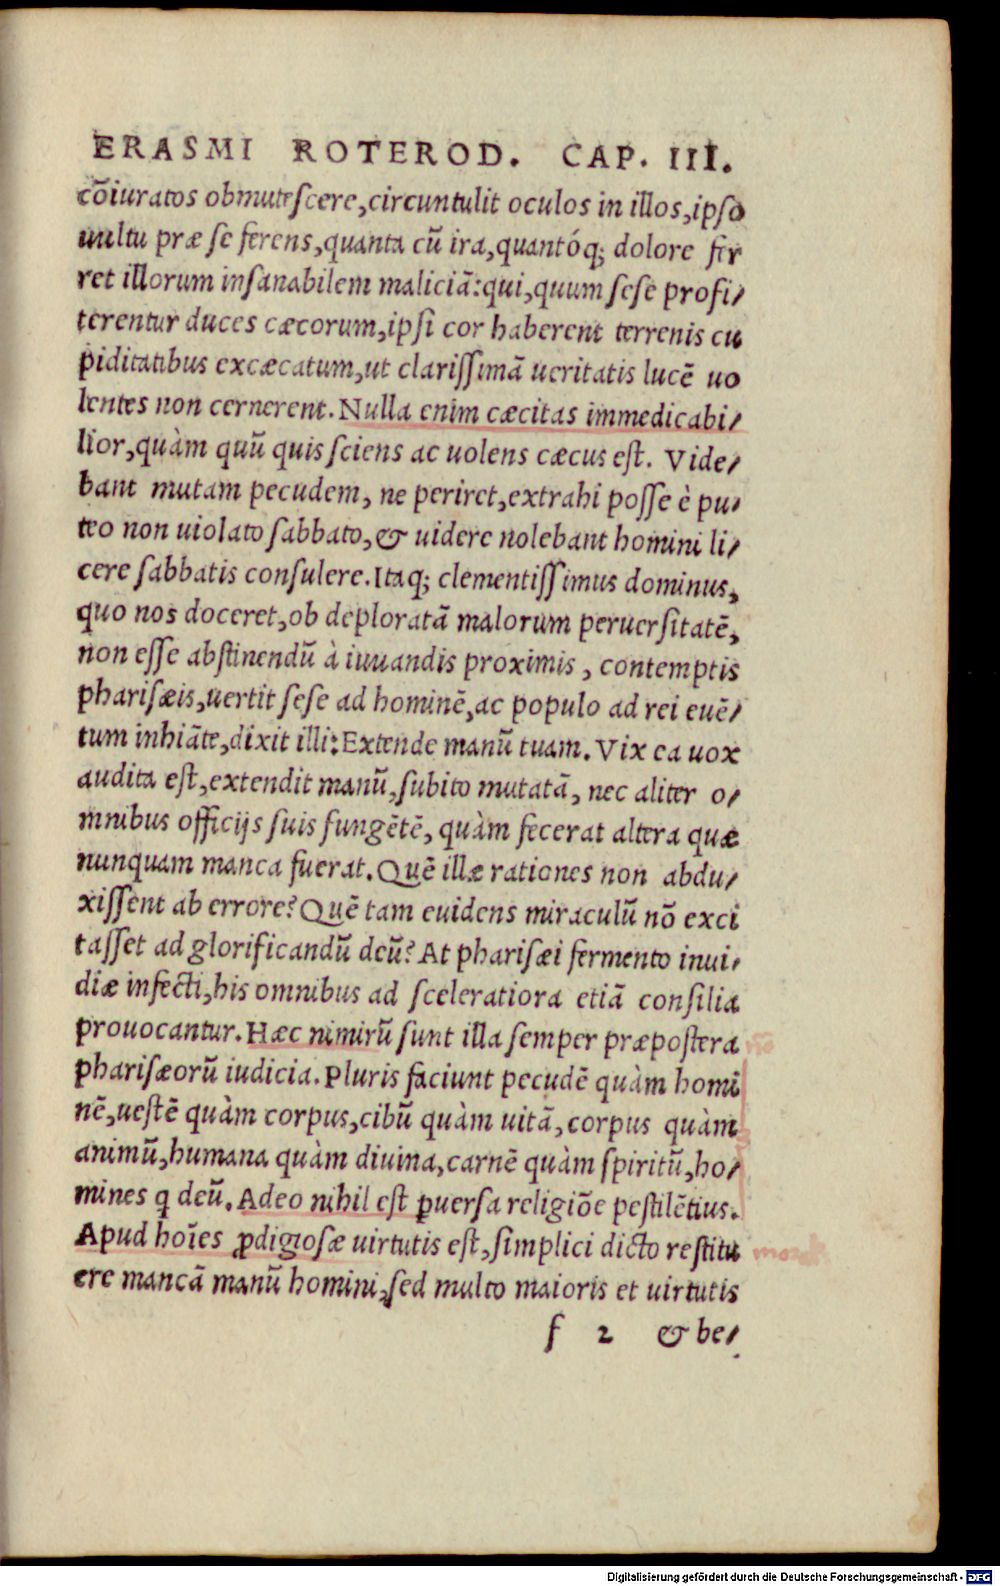 ERASMI ROTEROD. CAP. III.
cōiuratos obmutescere, circuntulit oculos in illos, ipso
uultu præ se ferens, quanta cū ira, quantóq; dolore fer
ret illorum insanabilem maliciā: qui, quum sese profi/
terentur duces cæcorum, ipsi cor haberent terrenis cu
piditatibus excæcatum, ut clarissimā ueritatis lucē uo
lentes non cernerent. Nulla enim cæcitas immedicabi/
lior, quàm quū quis sciens ac uolens cæcus est. Vide/
bant mutam pecudem, ne periret, extrahi posse è pu/
teo non uiolato sabbato, & uidere nolebant homini li/
cere sabbatis consulere. Itaq; clementissimus dominus,
quo nos doceret, ob deploratā malorum peruersitatē,
non esse abstinendū à iuuandis proximis, contemptis
pharisæis, uertit sese ad hominē, ac populo ad rei euē/
tum inhiāte, dixit illi: Extende manū tuam. Vix ea uox
audita est, extendit manū, subito mutatā, nec aliter o/
mnibus officijs suis fungētē, quàm fecerat altera quæ
nunquam manca fuerat. Quē illæ rationes non abdu/
xissent ab errore? Quē tam euidens miraculū nō exci
tasset ad glorificandū deū? At pharisæi fermento inui/
diæ infecti, his omnibus ad sceleratiora etiā consilia
prouocantur. Hæc nimirū sunt illa semper præpostera
pharisæorū iudicia. Pluris faciunt pecudē quàm homi
nē, uestē quàm corpus, cibū quàm uitā, corpus quàm
animū, humana quàm diuina, carnē quàm spiritū, ho/
mines q̄ deū. Adeo nihil est ꝑuersa religiōe pestilētius.
Apud hoīes ꝓdigiosæ uirtutis est, simplici dicto restitu
ere mancā manū homini, sed multo maioris et uirtutis
f 2 & be/
Digitalisierung gefördert durch die Deutsche Forschungsgemeinschaft - DFG